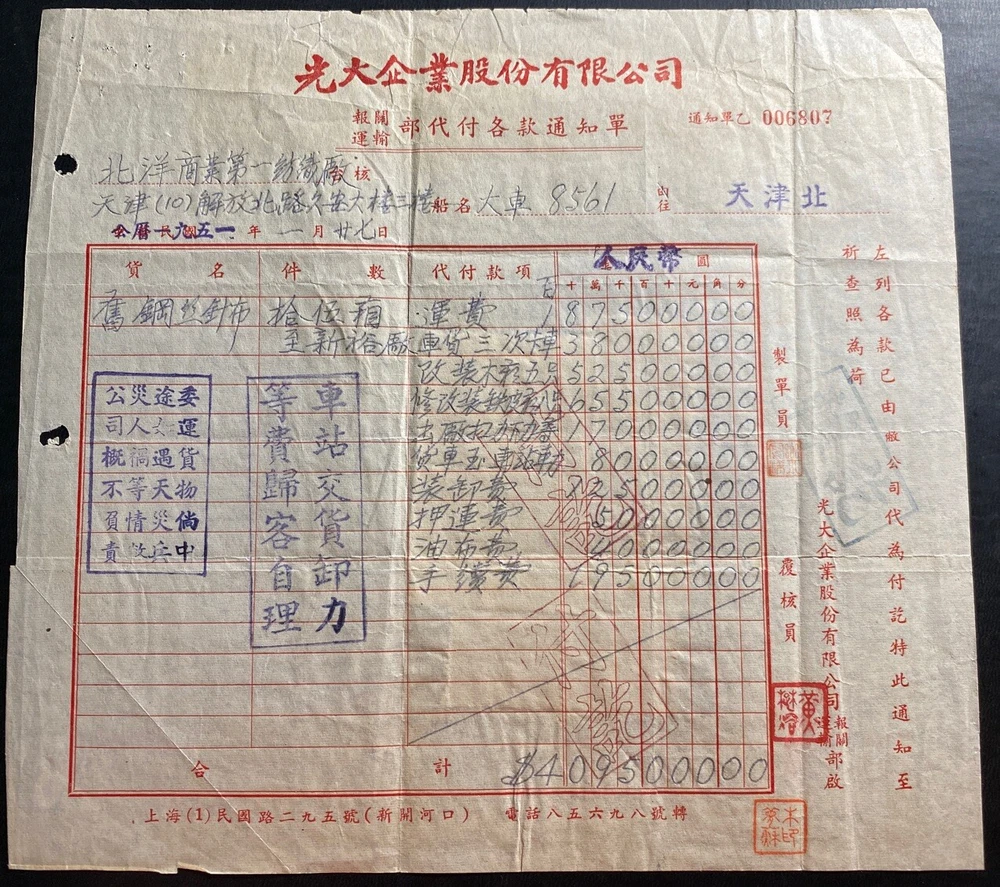 光大企業股份有限公司
報關
運輸
部代付各款通知單
通知單乙 006807
北洋商業第一紡織廠 台核
天津(10)解放北路久安大樓三樓
船名 大車 8561
由往 天津北
公曆一九五一年 一月廿七日
貨名 件數 代付款項 人民幣 圓
百 十 萬 千 百 十 元 角 分
舊鋼丝針布 拾伍箱 運費 187500000
至新裕廠運貨三次卡車 38000000
改装木箱五只 52500000
65500000
17000000
貨車至車站 8000000
装卸費 82500000
押運費 5000000
油布費 4000000
手續費 19500000
合計 $409500000
委運貨物倘中
途如遇天災兵
災人禍等情故
公司概不負責
車站交貨卸力
等費歸客自理
製單員
覆核員
黃
左列各款已由敝公司代為付訖特此通知至
祈查照為荷
光大企業股份有限公司報關運輸部啟
上海(1)民國路二九五號(新開河口) 電話八五六九八號轉